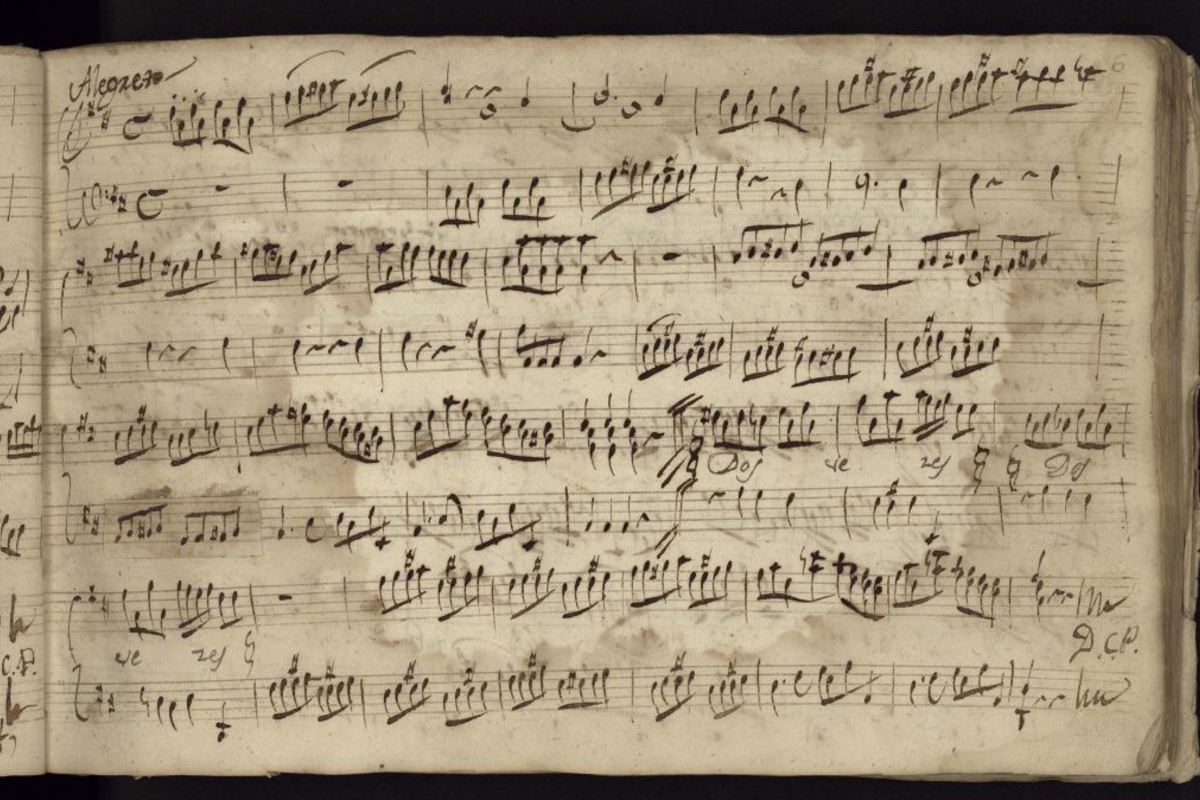 Alegreto
6
Dos ve zes Dos
ve zes
D.C.P.
C.P.